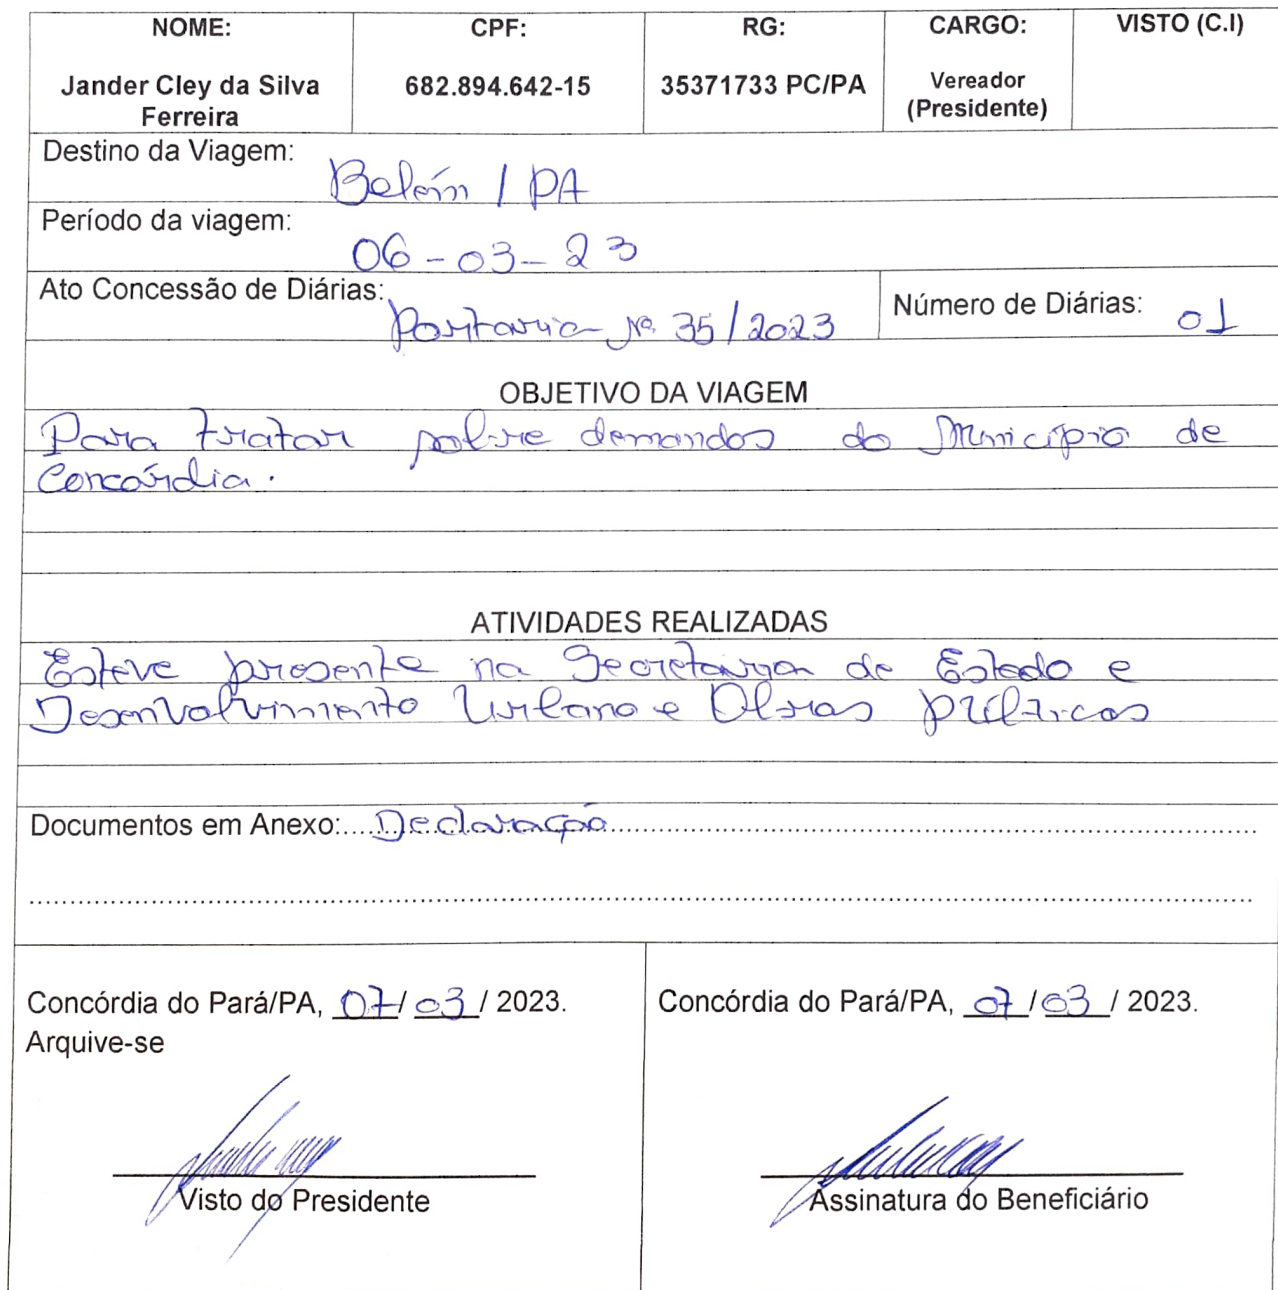 NOME: CPF: RG: CARGO: VISTO (C.I)
Jander Cley da Silva Ferreira 682.894.642-15 35371733 PC/PA Vereador (Presidente)
Destino da Viagem: Belém / PA
Período da viagem: 06-03-23
Ato Concessão de Diárias: Portaria Nº 35/2023 Número de Diárias: 01
OBJETIVO DA VIAGEM
Para tratar sobre demandas do Município de
Concórdia.
ATIVIDADES REALIZADAS
Esteve presente na Secretaria de Estado e
Desenvolvimento Urbano e Obras Públicas
Documentos em Anexo: Declaração
Concórdia do Pará/PA, 07/03/2023.
Arquive-se
Visto do Presidente
Concórdia do Pará/PA, 07/03/2023.
Assinatura do Beneficiário